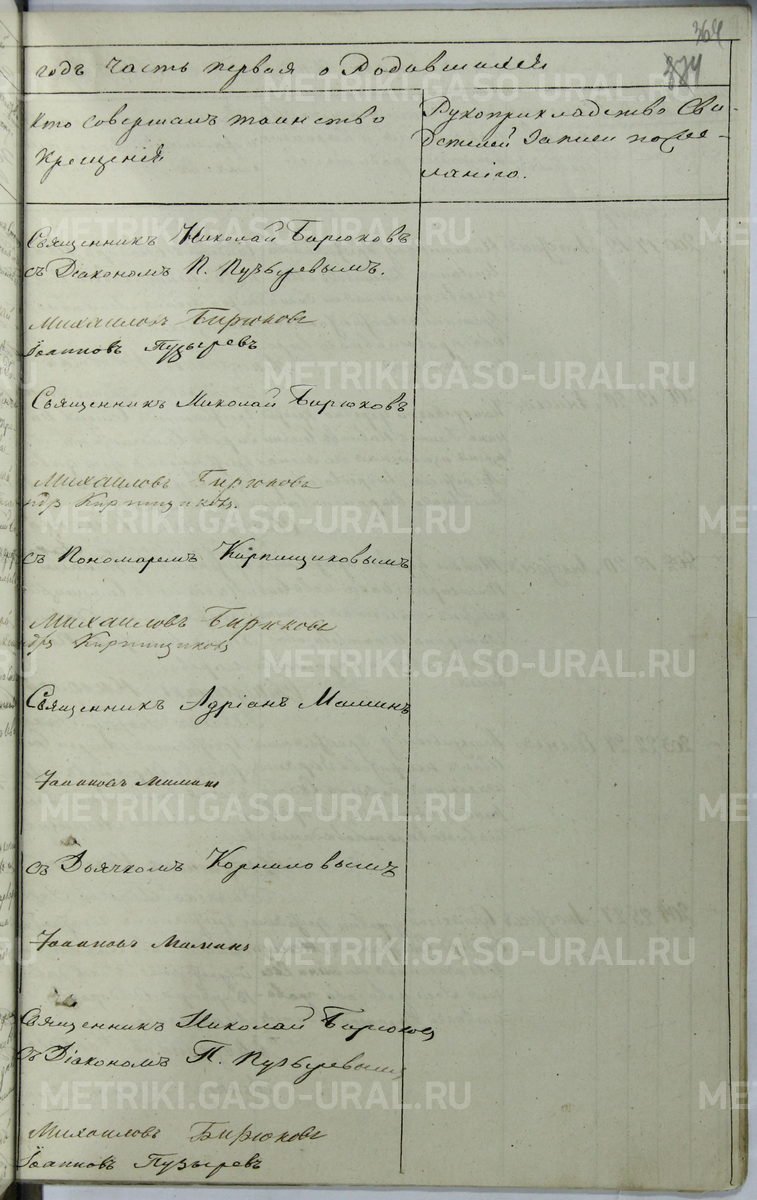 364
384
годъ часть первая о Родившихся
Кто совершалъ таинство
крещенія
Рукоприкладство Сви-
дѣтелей записи по же-
ланію.
Священникъ Николай Бирюковъ
съ Діакономъ П. Пузыревымъ.
Михаиловъ Бирюковъ
Іоанновъ Пузыревъ
Священникъ Николай Бирюковъ
Михаиловъ Бирюковъ
Кирпищиковъ.
съ Пономаремъ Кирпищиковымъ
Михаиловъ Бирюковъ
Кирпищиковъ
Священникъ Адріанъ Маминъ
Іоанновъ Маминъ
съ Дьячкомъ Корниловымъ
Іоанновъ Маминъ
Священникъ Николай Бирюковъ
съ Діакономъ П. Пузыревымъ
Михаиловъ Бирюковъ
Іоанновъ Пузыревъ
METRIKI.GASO-URAL.RU